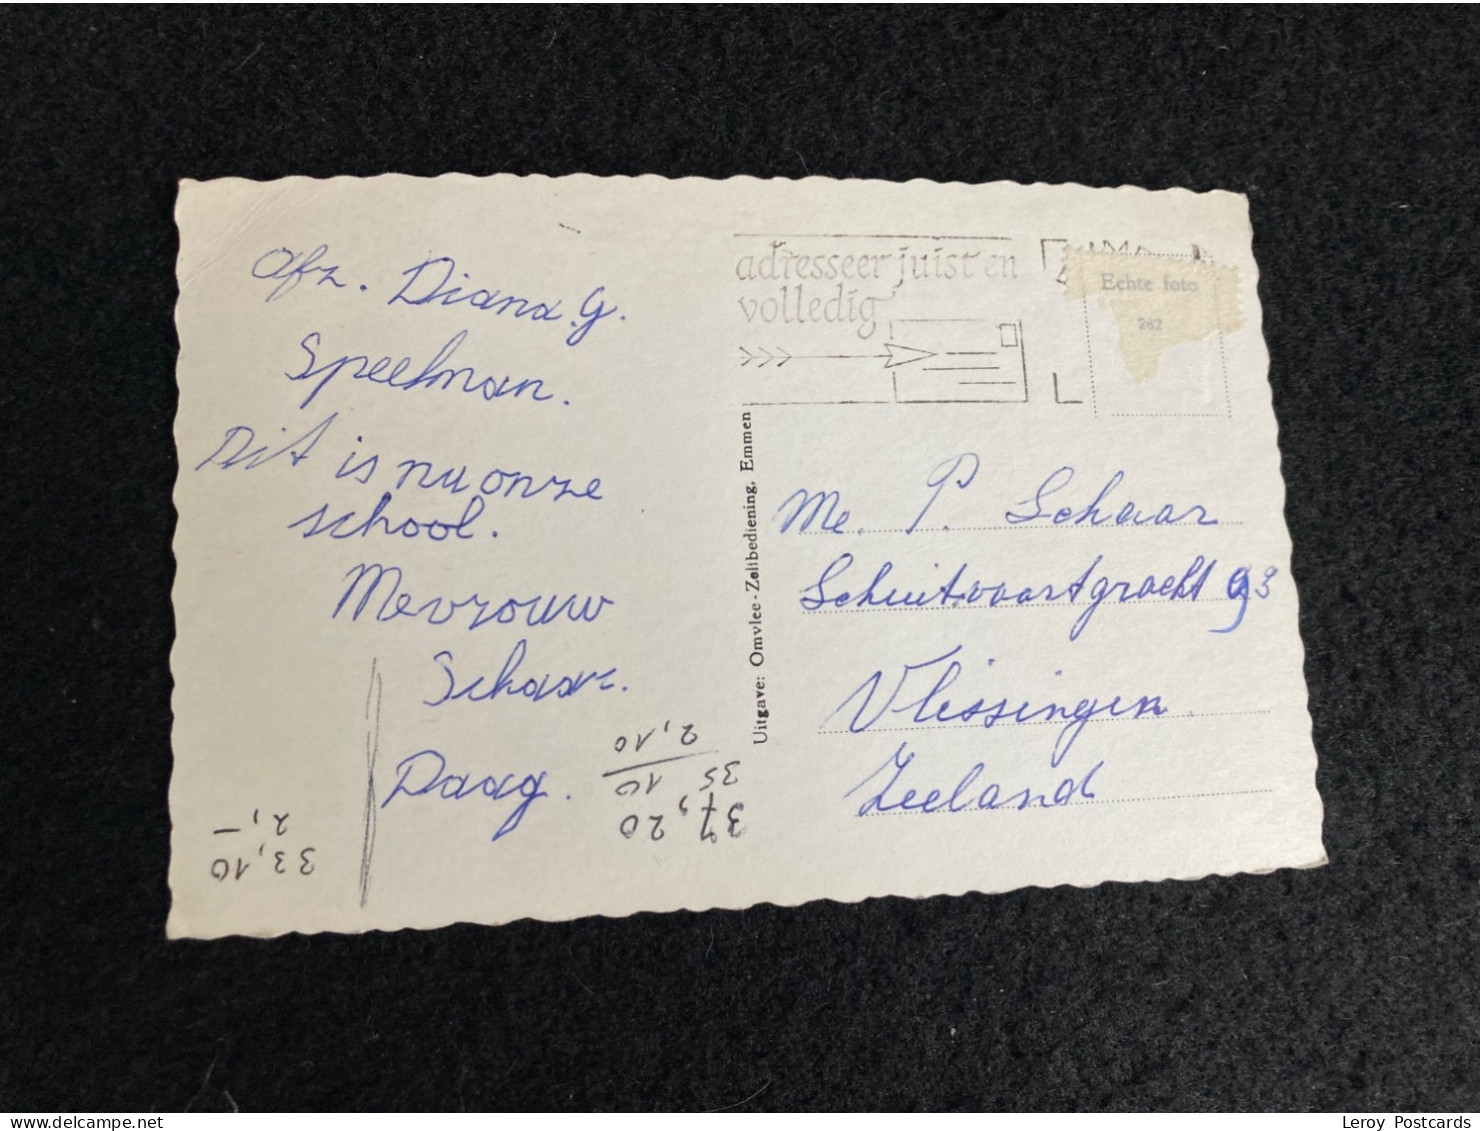 Afz. Diana. G.
Speelman.
Dit is nu onze
school.
Mevrouw
Schaar.
Daag.
33,10
2,-
37,20
35
10
2,10
adresseer juist en
volledig
Echte foto
262
Uitgave: Omvlee-Zelfbediening, Emmen
Me. P. Schaar
Schuitvaartgracht 93
Vlissingen
Zeeland
Leroy Postcards